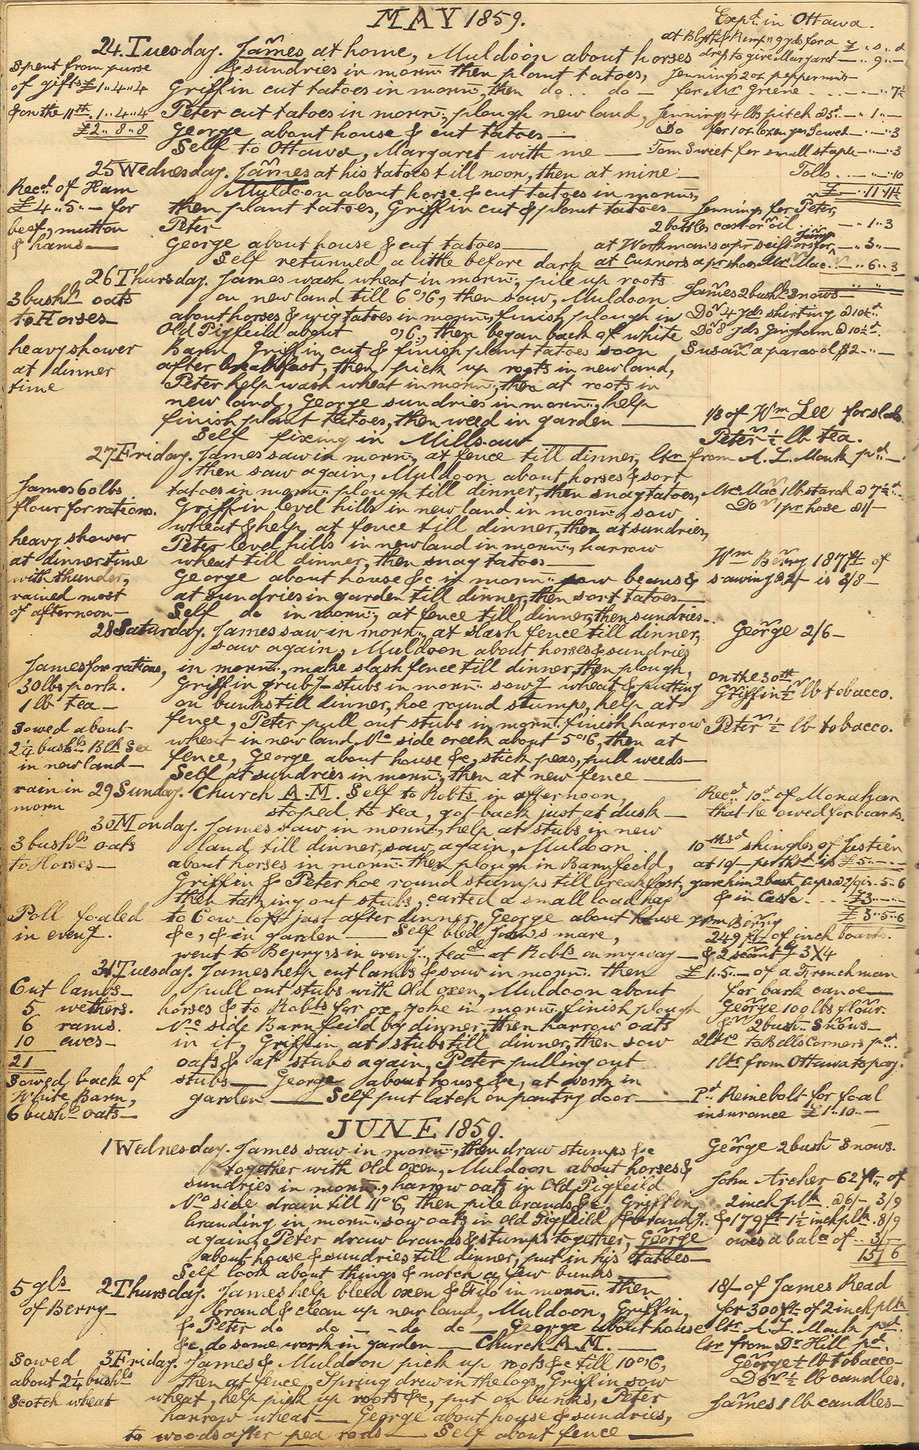 MAY 1859.
24 Tuesday. James at home, Muldoon about horses
& sundries in morn:, then plant tatoes,
Griffin cut tatoes in morn:, then do.. do —
Peter cut tatoes in morn:, plough new land,
George about house & cut tatoes —
Self to Ottawa, Margaret with me —
Spent from purse
of gifts £1..4..4
& on the 11th. 1..4..4
£2..8..8
Expt. in Ottawa.
drop to give Margaret — .. 9 ..
Jennings 2 oz peppermint
for Mrs Greene
Jennings 4 lbs pitch
Tom Sweet for small staple — .. 3
Toll
25 Wednesday. James at his tatoes till noon, then at mine —
Muldoon about horse & cut tatoes in morn:,
then plant tatoes, Griffin cut & plant tatoes
Peter
George about house & cut tatoes
Self returned a little before dark
Recd. of Ham
£4..5..— for
beef, mutton
& hams —
Jennings for Peter,
2 bottles castor oil .. 1..3
at Workman's a pr
at Cuzners a pr shoes Mrs Mac .. 6..3
26 Thursday. James wash wheat in morn:, pile up roots
on new land till 6 o'6, then saw, Muldoon
about horses & wig tatoes in morn:, finish plough in
Old Pigfeild about o'6, then began back of white
Barn Griffin cut & finish plant tatoes soon
after breakfast, then pick up roots in new land,
Peter help wash wheat in morn:, then at roots in
new land, George sundries in morn:, help
finish plant tatoes, then weed in garden
Self fixing in Millsaw
3 bushls oats
to Horses —
heavy shower
at dinner
time
James 2 bushls Snows —
Do 4 yds shirting
Do 8 yds gingham
Susan a parasol $2 —
of Wm Lee for slab
Peter ½ lb tea.
27 Friday. James saw in morn:, at fence till dinner,
then saw again, Muldoon about horses & sort
tatoes in morn:, plough till dinner, then snag tatoes,
Griffin level hills in new land in morn:, saw
wheat & help at fence till dinner, then at sundries,
Peter level hills in new land in morn:, harrow
wheat till dinner, then snag tatoes —
George about house &c in morn: sow beans &
at sundries in garden till dinner, then sort tatoes —
Self do in morn:, at fence till dinner, then sundries..
James 60 lbs
flour for rations.
heavy shower
at dinnertime
with thunder,
rained most
of afternoon —
ltr from A. L. Monk pd —
Mrs Mac 1 lb starch
Do 1 pr hose
Wm Berry 1817 ft of
sawing 2/4 is 2/8 —
28 Saturday. James saw in morn:, at slash fence till dinner,
saw again, Muldoon about horses & sundries
in morn:, make slash fence till dinner, then plough,
Griffin grubg stubs in morn: sowg wheat & putting
on bunks till dinner, hoe round stumps, help at
fence, Peter pull out stubs in morn: finish harrow
wheat in new land No side creek about 5 o'6, then at
fence, George about house &c, stick peas, pull weeds —
Self at sundries in morn:, then at new fence
James for rations,
30 lbs pork.
1 lb tea —
Sowed about
2¼ bushls Blk Sea
in new land —
George 2/6 —
on the 30th
Griffin ½ lb tobacco.
Peter ½ lb tobacco.
29 Sunday. Church A.M. Self to Robts in afternoon,
stoped to tea, got back just at dusk
rain in
morn
Recd 10d of Monahan
that he owed for boards.
30 Monday. James saw in morn:, help at stubs in new
land, till dinner, saw again, Muldoon
about horses in morn: then plough in Barnfeild,
Griffin & Peter hoe round stumps till breakfast,
then taking out stubs, carted a small load hay
to Cow loft just after dinner, George about house
&c, & in garden — Self bled James mare,
went to Berrys in eveng., tea at Robts on my way —
3 bushls oats
to Horses —
Poll foaled
in eveng. —
10 Msd shingles of Justien
£3..5..6
Wm Berry
249 ft of inch boards.
& 2 scantg 3X4
31 Tuesday. James help cut lambs & saw in morn: then
pull out stubs with Old oxen, Muldoon about
horses & to Robts for ox yoke in morn: finish plough
No side Barnfeild by dinner, then harrow oats
in it, Griffin at stubs till dinner, then sow
oats & at stubs again, Peter pulling out
stubs — George about house &c, at work in
garden — Self put latch on pantry door
Cut lambs —
5 wethers.
6 rams.
10 ewes —
21
Sowed back of
White Barn,
6 bush. oats —
£1..5..— of a Frenchman
for bark canoe —
George 100 lbs flour.
& 2 bush. Snows —
2 ltrs to Bells Corners pd.
1 ltr from Ottawa to pay.
Pd Reinebolt for foal
insurance £1..10..—
JUNE 1859.
1 Wednesday. James saw in morn:, then draw stumps &c
together with Old oxen, Muldoon about horses &
sundries in morn:, harrow oats in Old Pigfeild
No side drain till 11 o'6, then pile brands &c Griffin
branding in morn: sow oats in Old Pigfeild & brandg.
again, Peter draw brands & stumps together, George
about house & sundries till dinner, put in his tatoes —
Self look about things & notch a few bunks
George 2 bush Snows.
John Archer 62 ft of
2 inch plk. 3/9
& 179 ft 1½ inch plk. 8/9
owes a bale of .. 3/
15/6
2 Thursday. James help bleed oxen & Two in morn: then
brand & clean up new land, Muldoon, Griffin,
& Peter do do — do do — George about house
&c, do some work in garden — Church A.M.
5 gls
of Berry —
18/— of James Read
for 300 ft of 2 inch plk
ltr. A. L. Monk pd.
ltr from Dr Hill pd.
3 Friday. James & Muldoon pick up roots &c till 10 o'6,
then at fence, Spring drew in the logs, Griffin sow
wheat, help pick up roots &c, put on bunks, Peter
harrow wheat — George about house & sundries,
to woods after pea rods — Self about fence
Sowed
about 2¼ bushls
Scotch wheat
George ½ lb tobacco —
Do ½ lb candles.
James 1 lb candles —